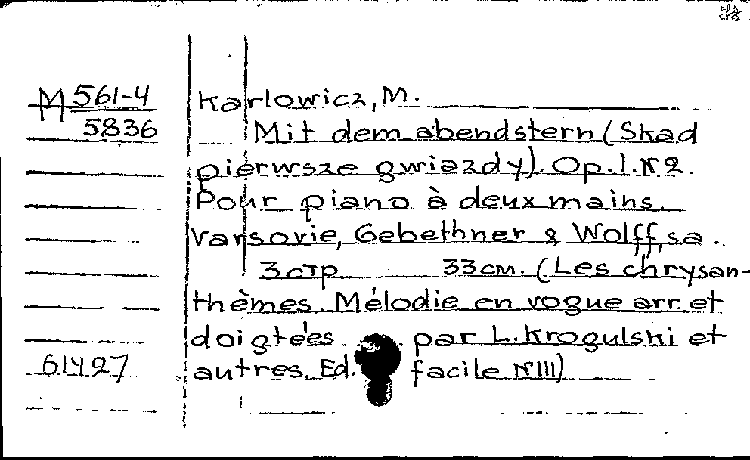 M 561-4
5836
Karlowicz, M.
Mit dem abendstern (Skad
pierwsze gwiazdy). Op.1. №2.
Pour piano à deux mains.
Varsovie, Gebethner & Wolff, sa.
3 стр 33 см. (Les chrysan-
thèmes. Mélodie en vogue arr. et
doigtées par L. Krogulski et
autres. Ed. facile №III)
61427